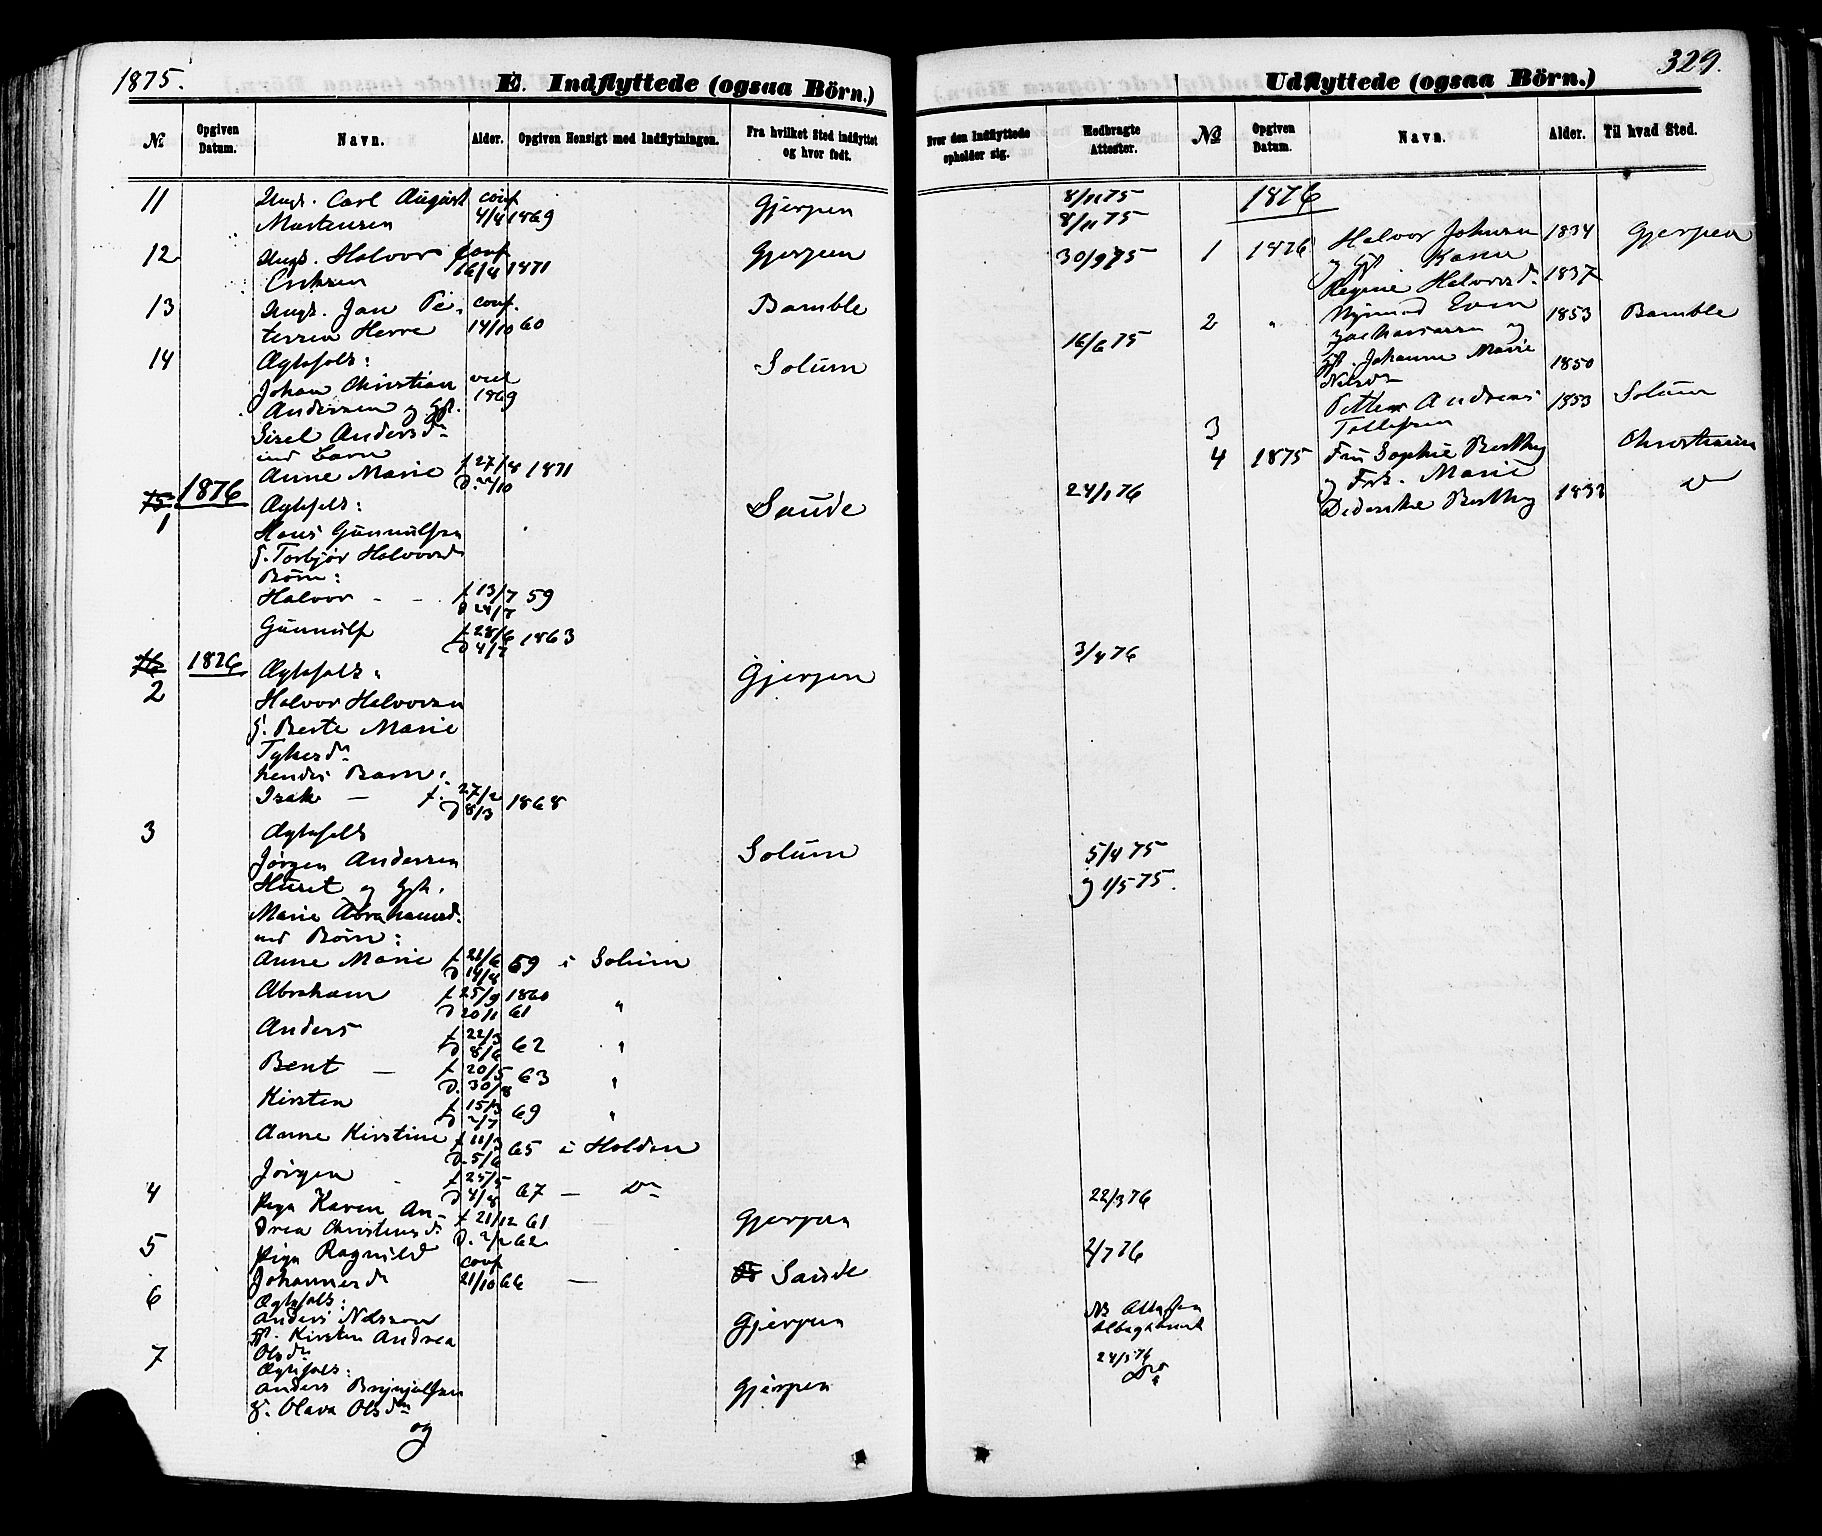 1875.
E. Indflyttede (ogsaa Börn.)
№ Opgiven Datum. Navn. Alder. Opgiven Hensigt med Indflytningen. Fra hvilket Sted indflyttet og hvor født.
11 Ungk. Carl August conf
Mortensen 4/4 1869 Gjerpen
12 Ungk. Halvor conf Gjerpen
16/4 1871
13 Ungk. Jan Pe- conf. Bamble
tersen Herre 14/10 60
14 Ægtefolk: Solum
Johan Christian viet
Andersen og Hst. 1869
Sisel Andersd
med Barn
Anne Marie f 27/8 1871
D. 22/10
15 1876 Ægtefolk: Saude
1
Hans Gunnulfsen
H. Torbjør Halvorsd
Børn:
Halvor - - f 13/7 59
D 24/7
Gunnulf f. 28/6 1863
D 4/7
16 1876 Ægtefolk: Gjerpen
2
Halvor Halvorsen
H. Berte Marie
hendes Barn:
Isak — f. 27/2 1868
D 8/3
3 Ægtefolk
Jørgen Andersen Solum
Huset og Hst.
Marie Abrahamsd.
med Børn:
Anne Marie f 21/6 59 i Solum
D 14/8
Abraham f 25/9 1860 "
D 20/1 61
Anders f 22/3 62 "
D 8/6
Bent — f 20/5 63 "
D. 30/8
Kirsten f 15/3 69 "
D 2/7
Anne Kirstine f 11/3 65 i Holden
D. 5/6
Jørgen f 25/5 67 — Do
D 4/8
4 Pige Karen An-
drea Christensd f 21/12 61 Gjerpen
D. 2/2 62
5 Pige Ragnild conf
Johannesd 21/10 66 — Saude
6 Ægtefolk:
Anders Nilsson Gjerpen
Hst. Kirsten Andrea
Olsd
7 Ægtefolk:
Anders Brynjulfsen Gjerpen
H. Olava Olsd
og
329.
Udflyttede (ogsaa Börn.)
Hvor den Indflyttede opholder sig. Medbragte Attester. № Opgiven Datum. Navn. Alder. Til hvad Sted.
8/11 75 1876
8/11 75
30/9 75 1 1876 Halvor Johnsen 1834 Gjerpen
og Hst Karen
Regine Halvorsd. 1837
2 " Even 1853 Bamble
16/6 75 Zachariassen og
Hst. Johanne Marie 1850
Nilsd
3 Petter Andreas 1853 Solum
Tollefsen
4 1875 Fru Sophie Christiania
24/1 76 og Frk. Marie
Do
3/4 76
5/4 75
og 1/5 75.
22/3 76
2/7 76
NB Attesten
24/5 76
Do